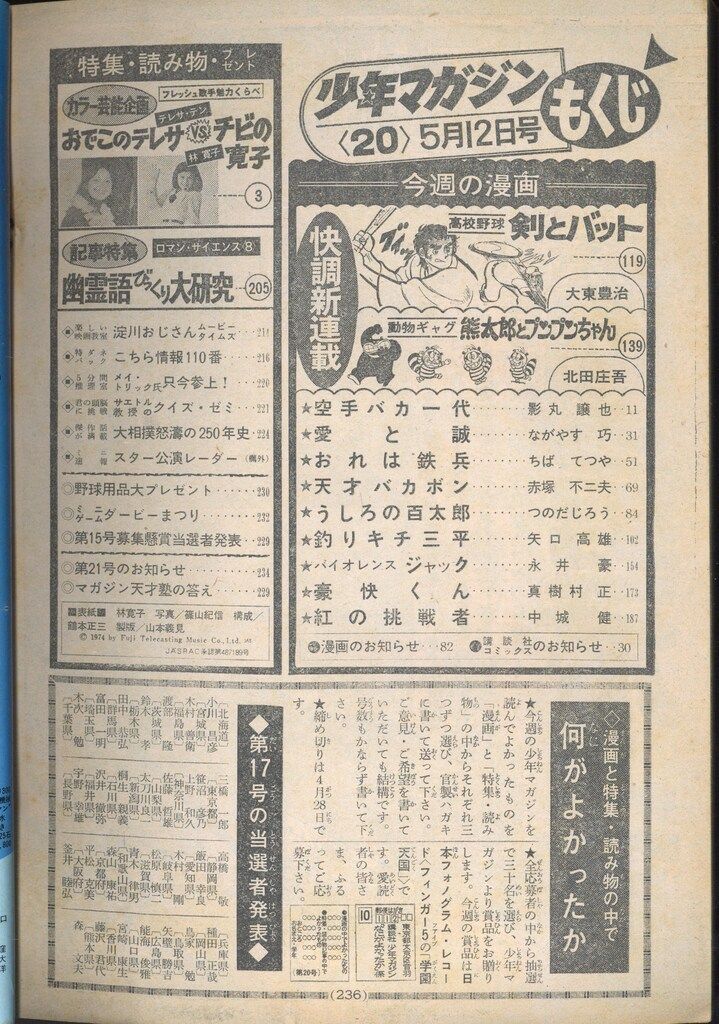 少年マガジン
もくじ
〈20〉5月12日号
今週の漫画
快調新連載
高校野球 剣とバット
119
大東豊治
動物ギャグ 熊太郎とプンプンちゃん
139
北田庄吾
★空手バカ一代……影丸 譲也…11
★愛と誠……ながやす 巧…31
★おれは鉄兵……ちば てつや…51
★天才バカボン……赤塚 不二夫…69
★うしろの百太郎……つのだじろう…84
★釣りキチ三平……矢口 高雄…102
★バイオレンス ジャック……永井 豪…154
★豪快くん……真樹村 正…173
★紅の挑戦者……中城 健…187
漫画のお知らせ…82
講談社コミックスのお知らせ…30
特集・読み物・プレゼント
カラー芸能企画
フレッシュ歌手魅力くらべ
テレサ・テン
おでこのテレサVSチビの寛子
林 寛子
3
記事特集
ロマン・サイエンス⑧
幽霊語びっくり大研究
205
■楽しい映画教室 淀川おじさんムービータイムズ…214
■特ダネパック こちら情報110番…216
■5分間推理室 メイ・トリック氏只今参上!…220
■君の頭脳に挑戦 サエトル教授のクイズ・ゼミ…221
■傑作話が満載 大相撲怒濤の250年史…224
■ミニ速報 スター公演レーダー(欄外)
◎野球用品大プレゼント…230
◎ミニゲームダービーまつり…232
◎第15号募集懸賞当選者発表…229
◎第21号のお知らせ…234
◎マガジン天才塾の答え…229
■表紙■ 林寛子 写真/篠山紀信 構成/
鶴本正三 製版/山本義見
© 1974 by Fuji Telecasting Music Co., Ltd.
JASRAC承認第487189号
漫画と特集・読み物の中で
何がよかったか
★今週の少年マガジンを
読んでよかったものを
「漫画」と「特集・読み
物」の中からそれぞれ三
つずつ選び、官製ハガキ
に書いて送って下さい。
ご意見・ご希望を書いて
いただいても結構です。
号数もかならず書いて下
さい。
★締め切りは4月28日で
す。
★全応募者の中から抽選
で三十名を選び、少年マ
ガジンより賞品をお贈り
します。今週の賞品は日
本フォノグラム・レコー
ド〈フィンガー5の「学園
天国」〉です。愛読者の皆さ
ま、ふるってご応
募下さい。
10
東京都文京区音羽
講談社 少年マガジン
(第20号)
◆第17号の当選者発表◆
〔北海道〕
小川 昌彦
〔宮城県〕
木村 善衛
〔福島県〕
渡部 隆
〔茨城県〕
鈴木 孝
〔栃木県〕
田中 恭弘
〔群馬県〕
富田 明
〔埼玉県〕
木次 勉
〔千葉県〕
三橋 一郎
〔東京都〕
笹沼 彦乃
上野 和久
〔神奈川県〕
佐藤 哲雄
〔山梨県〕
太刀川 良一
〔新潟県〕
桐生 親義
〔石川県〕
沢井 徹弥
〔福井県〕
宇野 幸雄
〔長野県〕
高橋 敬
〔静岡県〕
飯田 幸良
〔愛知県〕
木村 剛
〔岐阜県〕
松原 慎二
〔滋賀県〕
青木 律男
〔和歌山県〕
森山 康祐
〔京都府〕
平松 克美
〔大阪府〕
釜井 睦弘
〔兵庫県〕
種田 正哉
〔岡山県〕
鳥家 勉
〔鳥取県〕
矢壁 勝吉
〔広島県〕
能海 俊雅
〔山口県〕
宮崎 康生
〔香川県〕
藤沢 君代
〔熊本県〕
森 文夫
(236)